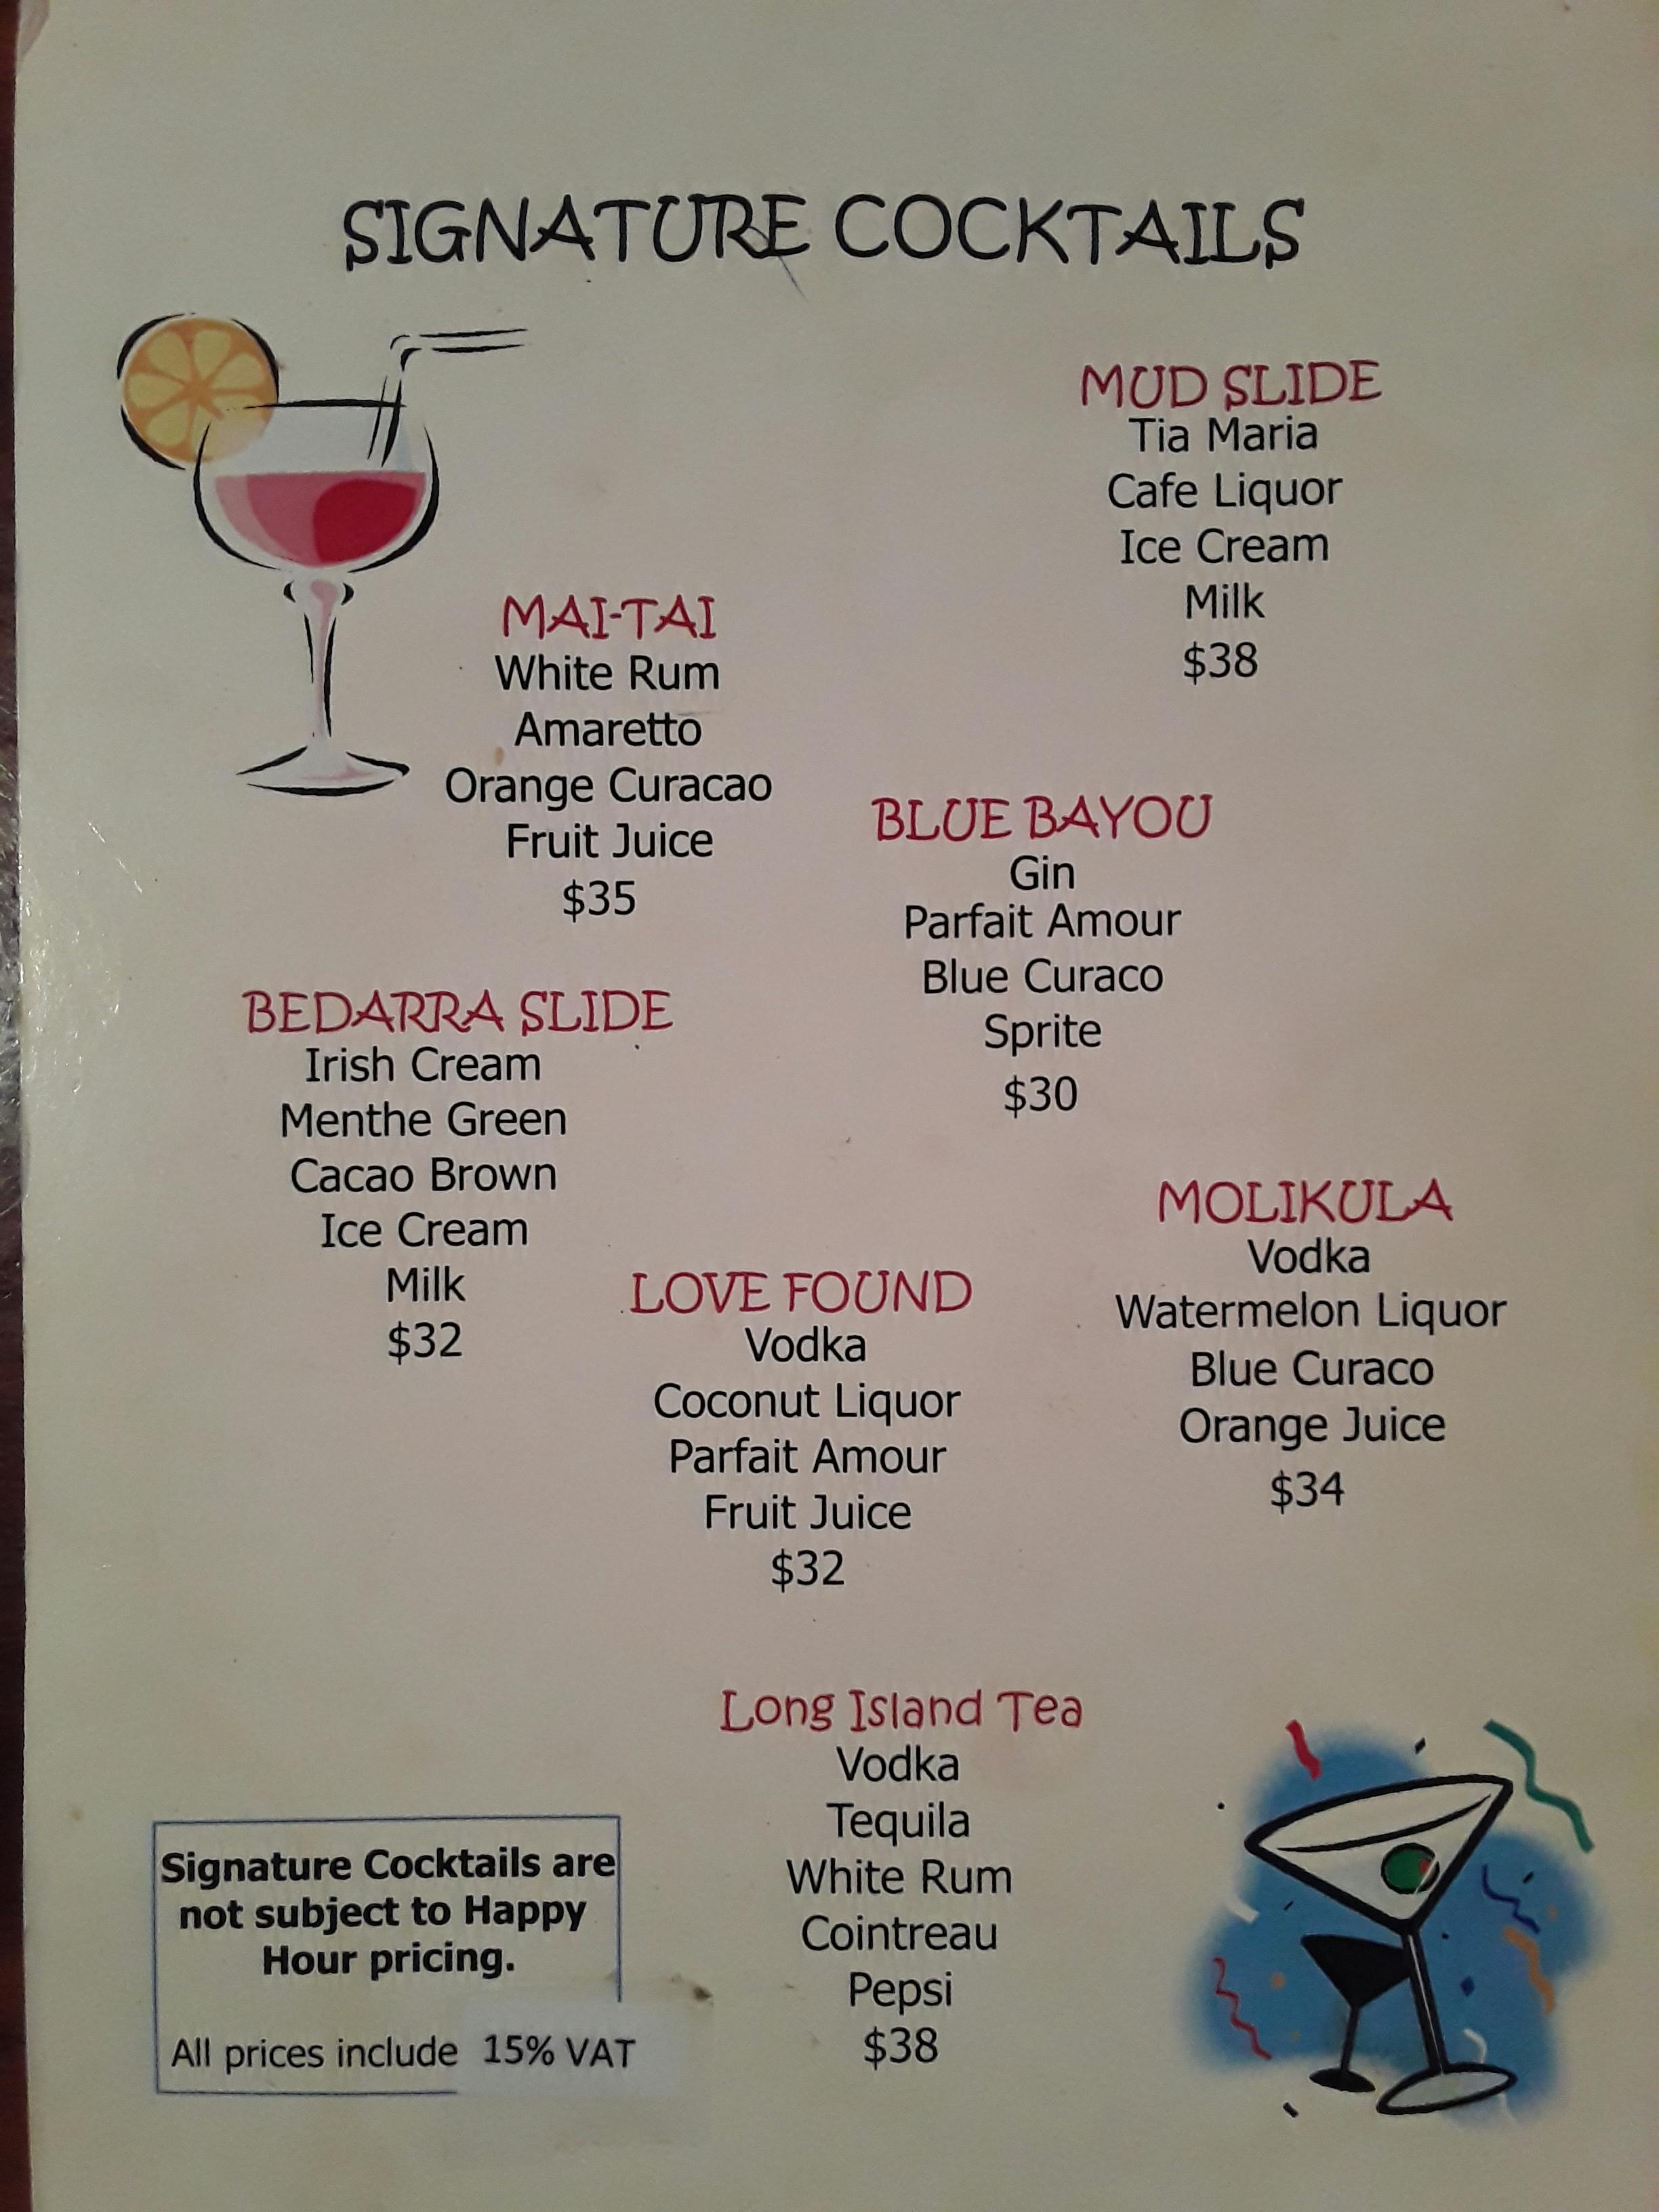 SIGNATURE COCKTAILS
MUD SLIDE
Tia Maria
Cafe Liquor
Ice Cream
Milk
$38
MAI-TAI
White Rum
Amaretto
Orange Curacao
Fruit Juice
$35
BLUE BAYOU
Gin
Parfait Amour
Blue Curaco
Sprite
$30
BEDARRA SLIDE
Irish Cream
Menthe Green
Cacao Brown
Ice Cream
Milk
$32
MOLIKULA
Vodka
Watermelon Liquor
Blue Curaco
Orange Juice
$34
LOVE FOUND
Vodka
Coconut Liquor
Parfait Amour
Fruit Juice
$32
Long Island Tea
Vodka
Tequila
White Rum
Cointreau
Pepsi
$38
Signature Cocktails are
not subject to Happy
Hour pricing.
All prices include 15% VAT